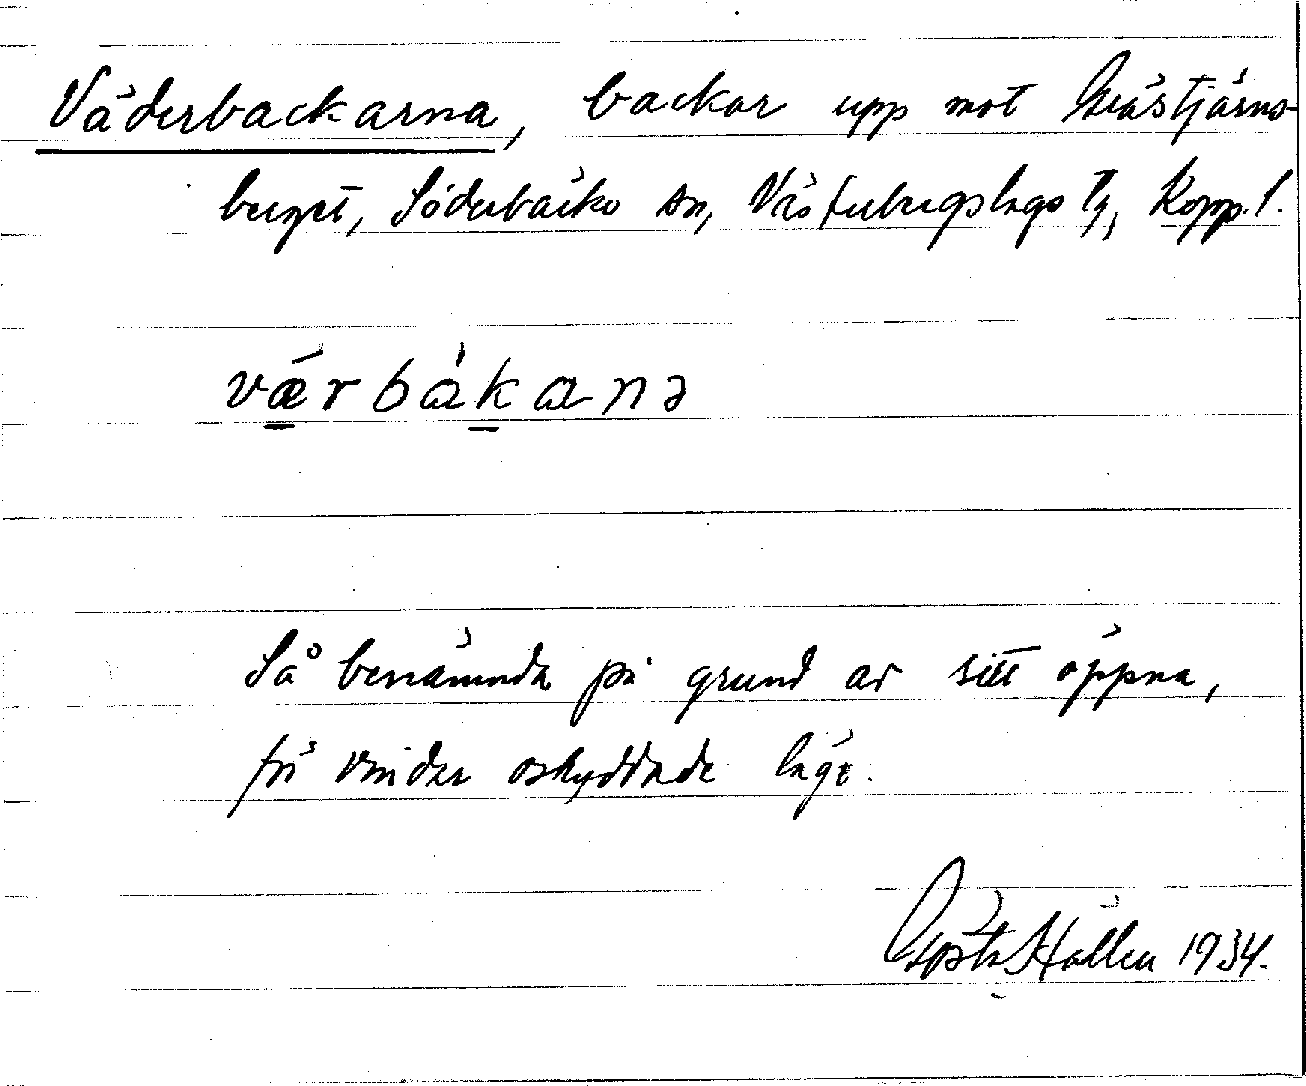 Väderbackarna, backar upp mot Grästjärns-
berget, Söderbärke sn, Västerbergslags tg, Kopp. l.
vǽrbàkanə
Så benämnda på grund av sitt öppna,
för vindar oskyddade läge.
Gösta Hallén 1934.